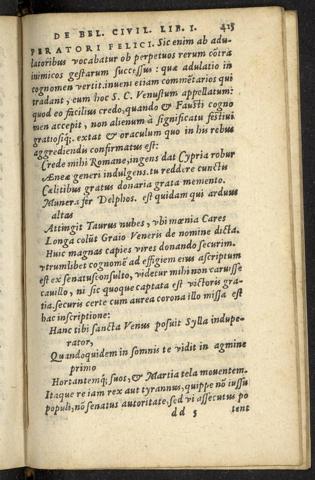 DE BEL. CIVIL. LIB. I. 425
PERATORI FELICI. Sic enim ab adu-
latoribus vocabatur ob perpetuos rerum cõtra
inimicos gestarum successus: quæ adulatio in
cognomen vertit. inueni etiam commẽtarios qui
tradant, eum hoc S. C. Venustum appellatum:
quod eo facilius credo, quando & Fausti cogno
men accepit, non alienum à significatu festiui
gratiosiq́;. extat & oraculum quo in his rebus
aggrediendis confirmatus est:
Crede mihi Romane, ingens dat Cypria robur
Æneæ generi indulgens. tu reddere cunctis
Cælitibus gratus donaria grata memento.
Munera fer Delphos. est quidam qui arduus
altas
Attingit Taurus nubes, vbi mœnia Cares
Longa colũt Graio Veneris de nomine dicta.
Huic magnas capies vires donando securim.
vtrumlibet cognomẽ ad effigiem eius ascriptum
est ex senatusconsulto, videtur mihi non caruisse
cauillo, ni sic quoque captata est victoris gra-
tia. securis certe cum aurea corona illo missa est
hac inscriptione:
Hanc tibi sancta Venus posuit Sylla indupe-
rator,
Quandoquidem in somnis te vidit in agmine
primo
Hortantemq́; suos, & Martia tela mouentem.
Itaque re iam rex aut tyrannus, quippe nõ iussu
populi, nõ senatus autoritate, sed vi assecutus po
dd 5 tent